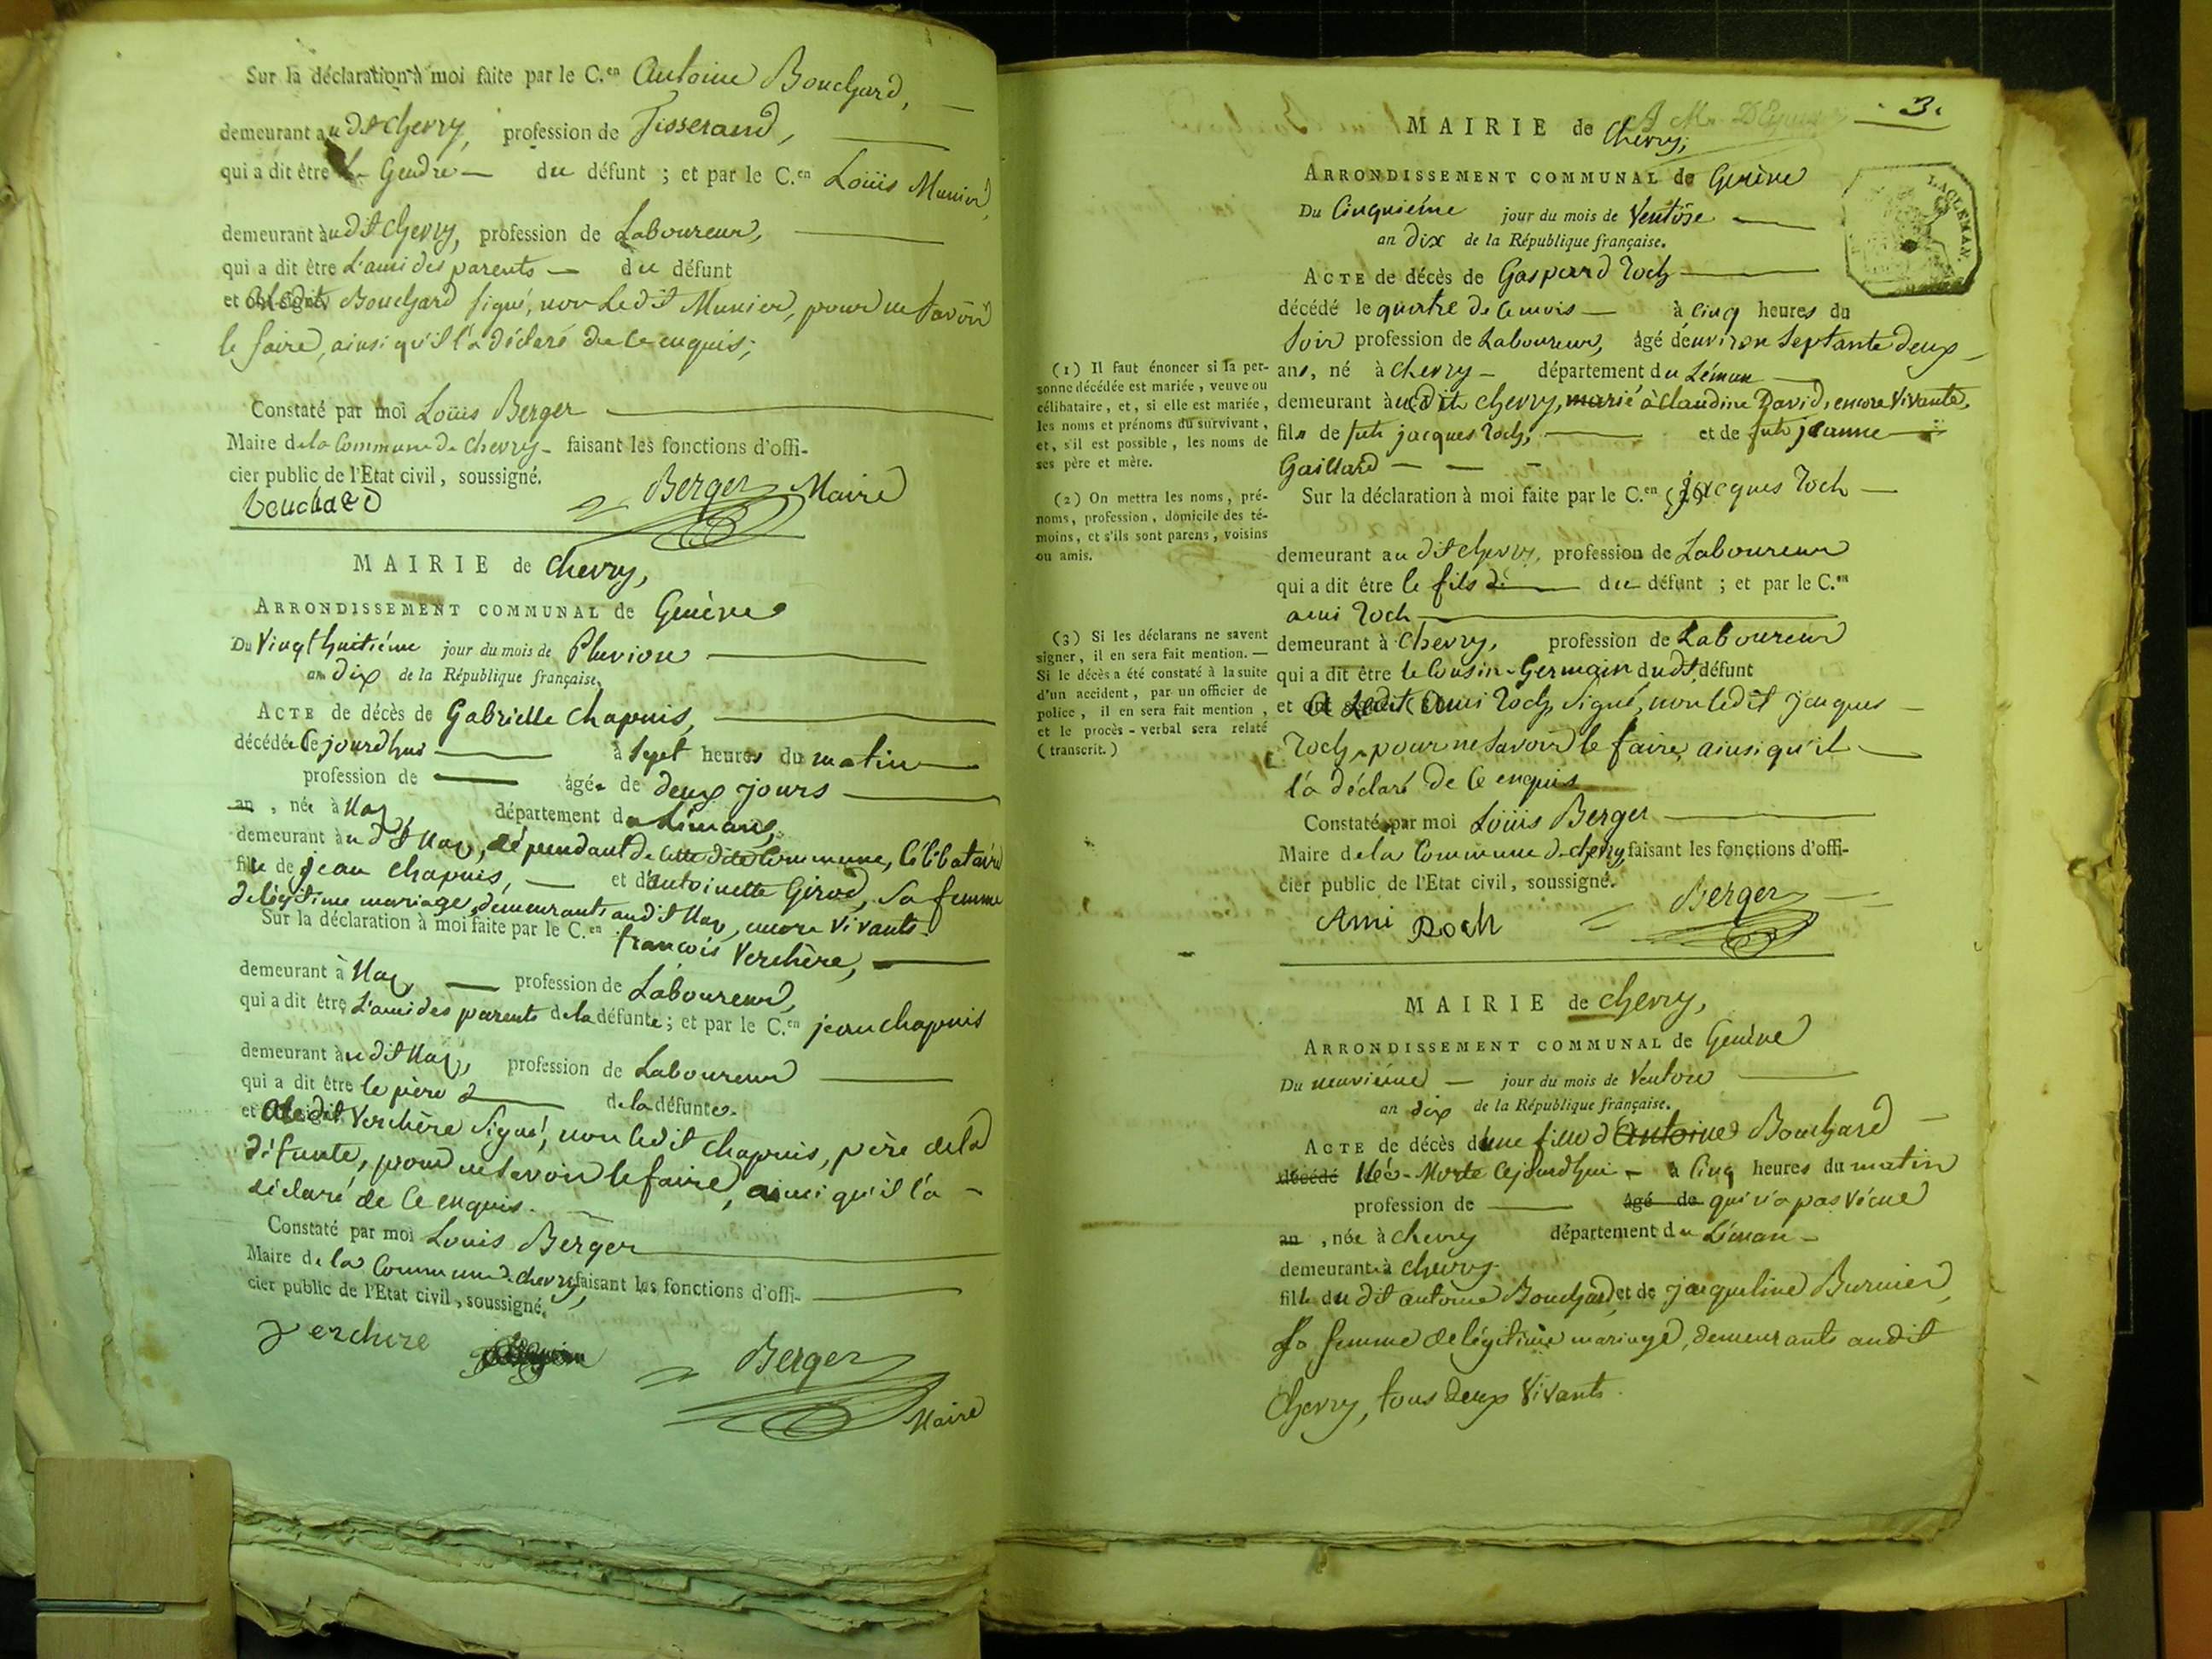 Sur la déclaration à moi faite par le C.en Antoine Bouchard,
demeurant au dit chevry, profession de Tisserand,
qui a dit être Le Gendre du défunt ; et par le C.en Loüis Munier,
demeurant àu dit chevry, profession de Laboureur,
qui a dit être L'ami des parents du défunt
et Bouchard signé, non Ledit Munier, pour ne savoir
le faire, ainsi qu'il l'a déclaré de ce enquis;
Constaté par moi Loüis Berger
Maire de la Commune de chevry faisant les fonctions d'offi-
cier public de l'Etat civil, soussigné.
bouchard Berger Maire
MAIRIE de chevry,
ARRONDISSEMENT COMMUNAL de Genève
Du Vingt huitiéme jour du mois de Pluviose
an dix de la République française.
ACTE de décès de Gabrielle chapuis,
décédée Cejourdhui à Sept heures du matin
profession de âgée de deux jours
an, née à Naz, département du Léman,
demeurant àu dit Naz, dépendant de cette dite Commune, Célibataire
fille de jean chapuis, et d'antoinette Girod, Sa femme
de légitime mariage, demeurants audit Naz, encore vivants.
Sur la déclaration à moi faite par le C.en françois Verchère,
demeurant à Naz, profession de Laboureur,
qui a dit être L'ami des parents de la défunte ; et par le C.en jean chapuis
demeurant àu dit Naz, profession de Laboureur
qui a dit être le père de la défunte.
et a ledit Verchère Signé, non ledit Chapuis, père de la
défunte, pour ne savoir le faire, ainsi qu'il l'a
déclaré de ce enquis.
Constaté par moi Louis Berger
Maire de la Commune de chevry, faisant les fonctions d'offi-
cier public de l'Etat civil, soussigné.
verchere Berger
Maire
3.
MAIRIE de Chevry,
ARRONDISSEMENT COMMUNAL de Genève
Du Cinquiéme jour du mois de Ventôse
an dix de la République française.
LAC LEMAN.
ACTE de décès de Gaspard Roch
décédé le quatre de ce mois à cinq heures du
soir profession de Laboureur, âgé d'environ Septante deux
ans, né à chevry département du Léman
demeurant àudit chevry, marié à claudine David, encore vivante,
fils de feu jacques Roch, et de feue jeanne
Gaillard
(1) Il faut énoncer si la per-
sonne décédée est mariée, veuve ou
célibataire, et, si elle est mariée,
les noms et prénoms du survivant,
et, s'il est possible, les noms de
ses père et mère.
(2) On mettra les noms, pré-
noms, profession, domicile des té-
moins, et s'ils sont parens, voisins
ou amis.
(3) Si les déclarans ne savent
signer, il en sera fait mention. —
Si le décès a été constaté à la suite
d'un accident, par un officier de
police, il en sera fait mention,
et le procès-verbal sera relaté
(transcrit.)
Sur la déclaration à moi faite par le C.en (2) jacques Roch
demeurant au dit chevry, profession de Laboureur
qui a dit être le fils du défunt ; et par le C.en
ami Roch
demeurant à Chevry, profession de Laboureur
qui a dit être le Cousin-Germain dudt. défunt
et a Ledit Ami Roch signé, non ledit jacques
Roch, pour ne savoir le faire, ainsi qu'il
l'a déclaré de ce enquis
Constaté par moi Loüis Berger
Maire de la Commune de chevry faisant les fonctions d'offi-
cier public de l'Etat civil, soussigné.
Ami Roch Berger
MAIRIE de chevry,
ARRONDISSEMENT COMMUNAL de Genève
Du neuviéme jour du mois de Ventose
an dix de la République française.
ACTE de décès d'une fille d'Antoine Bouchard
décédé Née-Morte Cejourdhui à Cinq heures du matin
profession de âgé de qui n'a pas vécue
an, née à chevry département du Léman
demeurant à chevry.
fille du dit antoine Bouchard et de jacqueline Burnier,
Sa femme de légitime mariage, demeurants audit
Chevry, tous deux vivants.